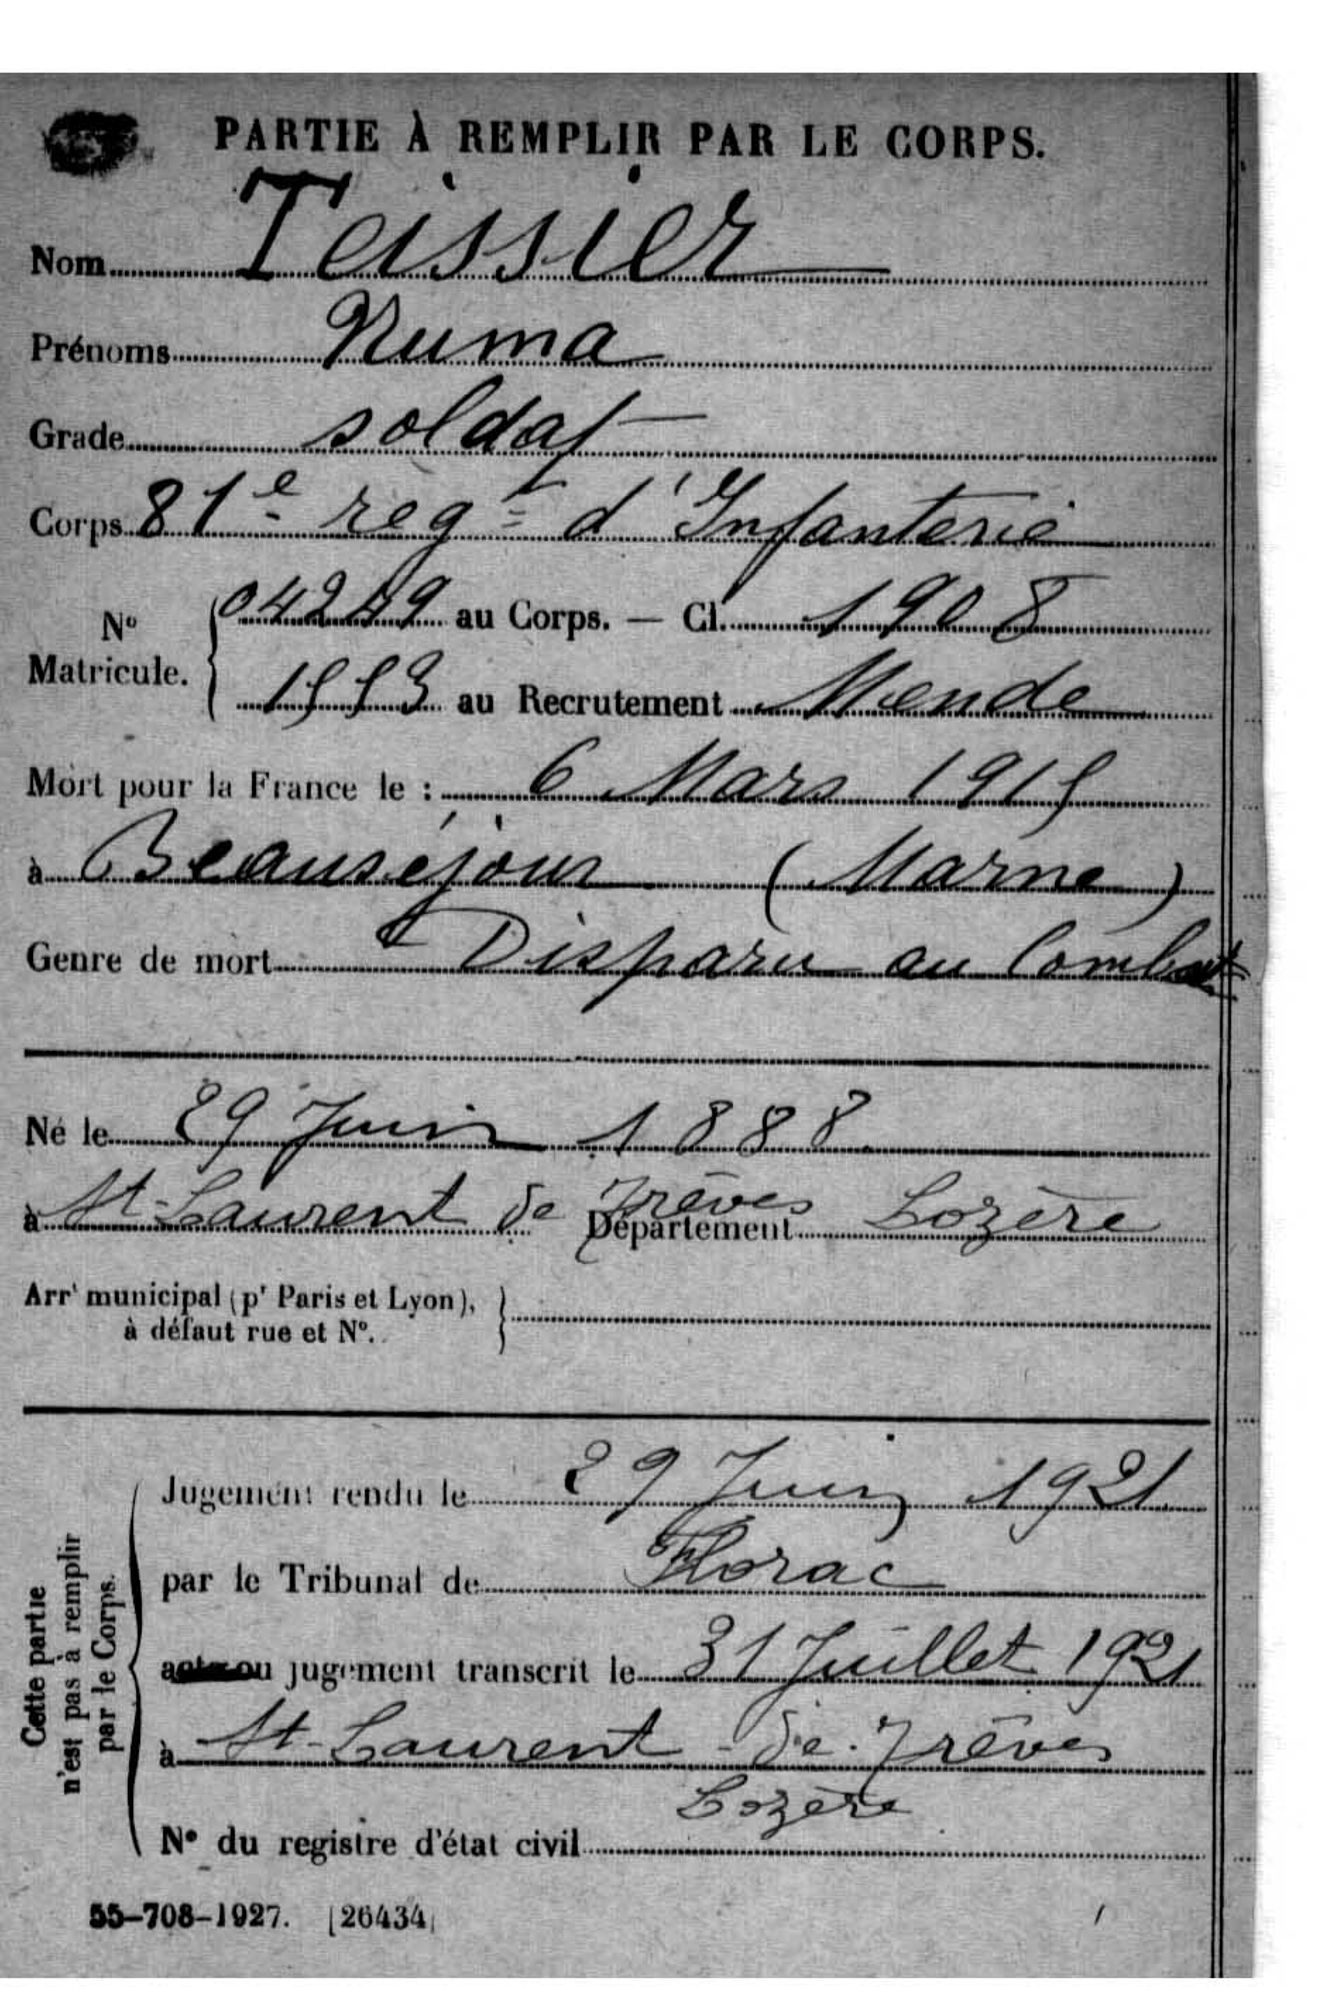 PARTIE À REMPLIR PAR LE CORPS.
Nom Teissier
Prénoms Numa
Grade soldat
Corps 81e regt d'Infanterie
No Matricule.
04249 au Corps. — Cl. 1908
1553 au Recrutement Mende
Mort pour la France le : 6 Mars 1915
à Beauséjour (Marne)
Genre de mort Disparu au Combat
Né le 29 Juin 1888
à St-Laurent de Trêves Département Lozère
Arrt municipal (pr Paris et Lyon),
à défaut rue et No.
Cette partie
n'est pas à remplir
par le Corps.
Jugement rendu le 29 Juin 1921
par le Tribunal de Florac
acte ou jugement transcrit le 31 Juillet 1921
à St-Laurent-de-Trêves
Lozère
No du registre d'état civil
55-708-1927. [26434]